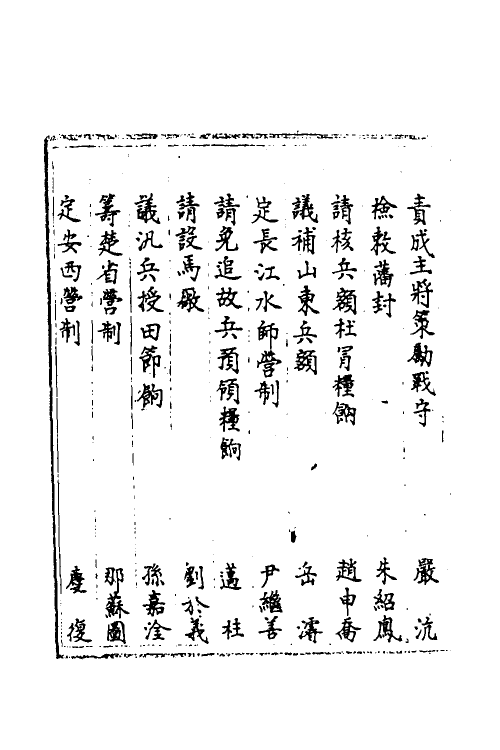 責成主將策勵戰守 嚴沆
檢敕藩封 朱紹鳳
請核兵額杜冒糧餉 趙申喬
議補山東兵額 岳濬
定長江水師營制 尹繼善
請免追故兵預領糧餉 邁柱
請設馬廠 劉於義
議汛兵授田節餉 孫嘉淦
籌楚省營制 那蘇圖
定安西營制 慶復